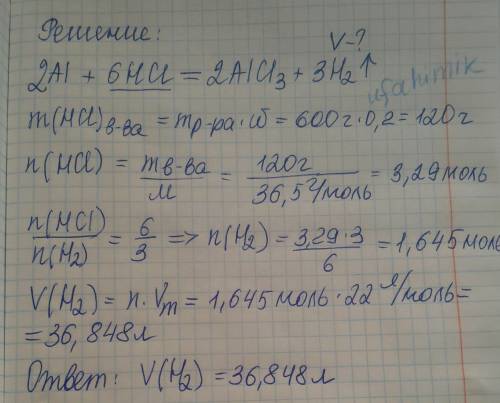 Решение:
V-?
2Al + 6HCl = 2AlCl₃ + 3H₂↑
ufahimik
m(HCl)в-ва = mр-ра · ω = 600г · 0,2 = 120г
n(HCl) = mв-ва / M = 120г / 36,5г/моль = 3,29моль
n(HCl) / n(H₂) = 6 / 3 => n(H₂) = 3,29 · 3 / 6 = 1,645моль
V(H₂) = n · Vm = 1,645моль · 22 л/моль =
= 36,848л
Ответ: V(H₂) = 36,848л